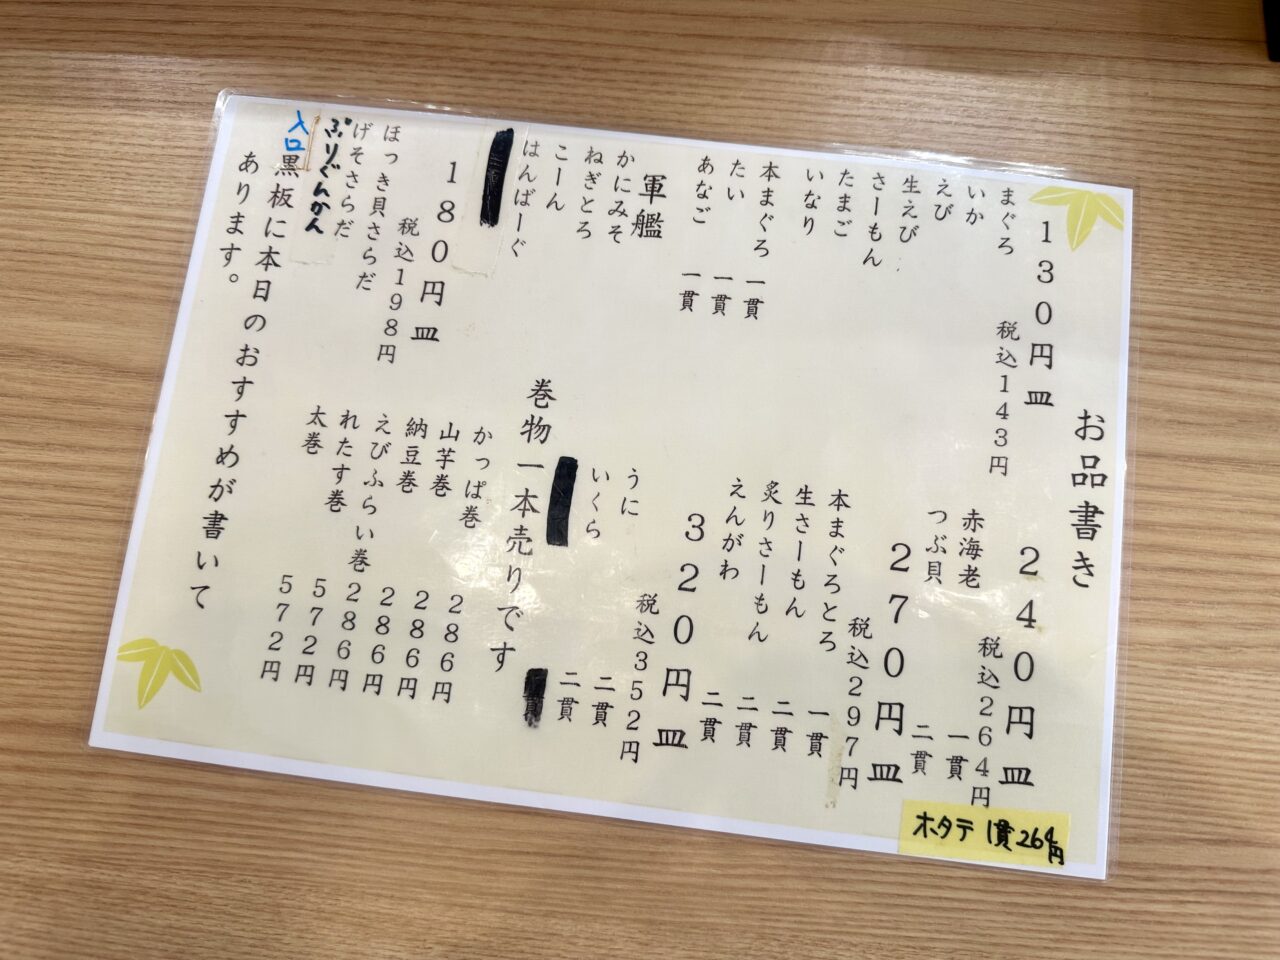 お品書き
130円皿
税込143円
まぐろ
いか
えび
生えび
さーもん
たまご
いなり
本まぐろ 一貫
たい 一貫
あなご 一貫
軍艦
かにみそ
ねぎとろ
こーん
はんばーぐ
180円皿
税込198円
ほっき貝さらだ
げそさらだ
ぷりぐんかん
240円皿
税込264円
赤海老 一貫
つぶ貝 二貫
270円皿
税込297円
本まぐろとろ 一貫
生さーもん 二貫
炙りさーもん 二貫
えんがわ 二貫
320円皿
税込352円
うに 二貫
いくら 二貫
巻物一本売りです
かっぱ巻 286円
山芋巻 286円
納豆巻 286円
えびふらい巻 286円
れたす巻 572円
太巻 572円
入口黒板に本日のおすすめが書いて
あります。
ホタテ 1貫264円